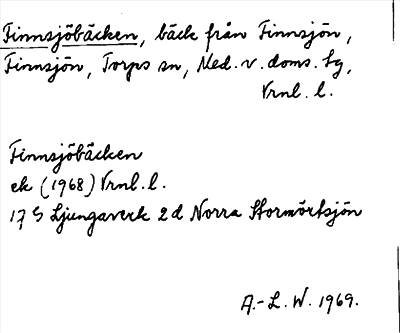 Finnsjöbäcken, bäck från Finnsjön,
Finnsjön, Torps sn, Med. v. doms. tg,
Vrnl. l.
Finnsjöbäcken
ek (1968) Vrnl. l.
17 G Ljungaverk 2d Norra Stormörtsjön
A.-L. W. 1969.